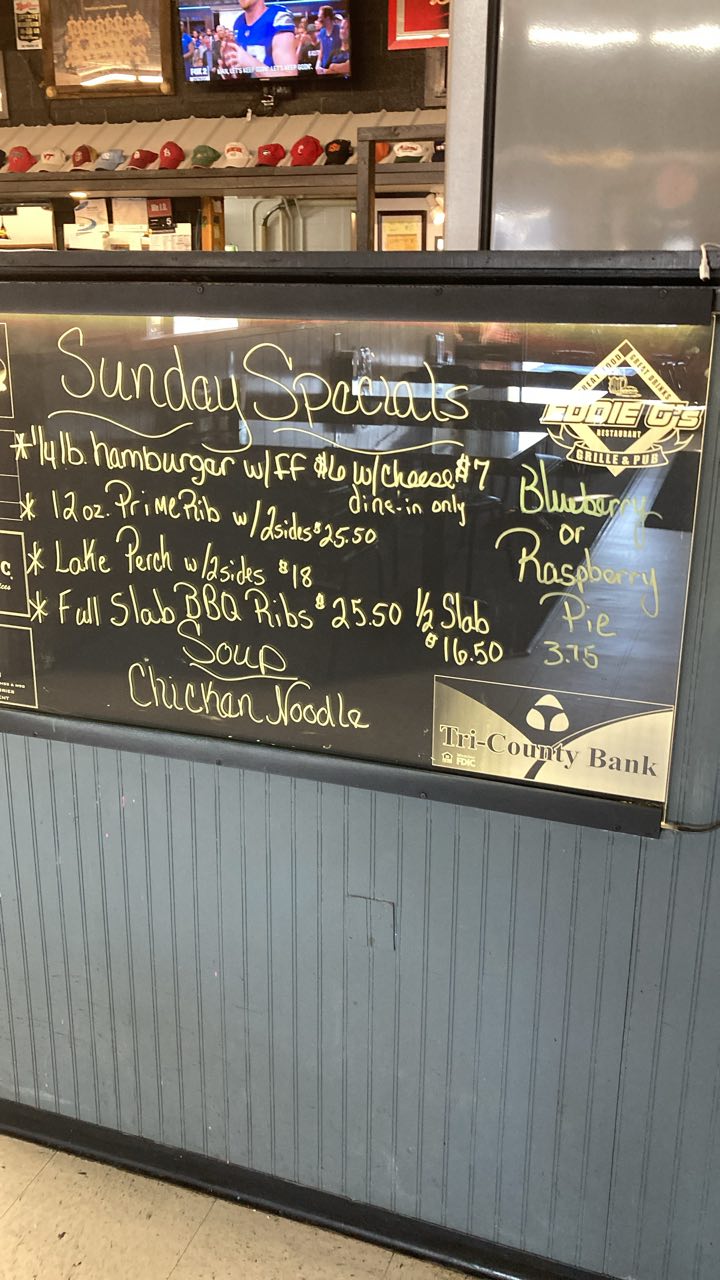 FOX 2
MAN, LET'S KEEP GOIN'. LET'S KEEP GOIN'.
Sunday Specials
*1/4 lb. hamburger w/FF $6 w/cheese $7
dine-in only
* 12 oz. Prime Rib w/2sides $25.50
* Lake Perch w/2sides $18
* Full Slab BBQ Ribs $25.50 1/2 Slab
$16.50
Soup
Chicken Noodle
REAL FOOD GREAT DRINKS
EDDIE G's
RESTAURANT
GRILLE & PUB
Blueberry
or
Raspberry
Pie
3.75
Tri-County Bank
FDIC